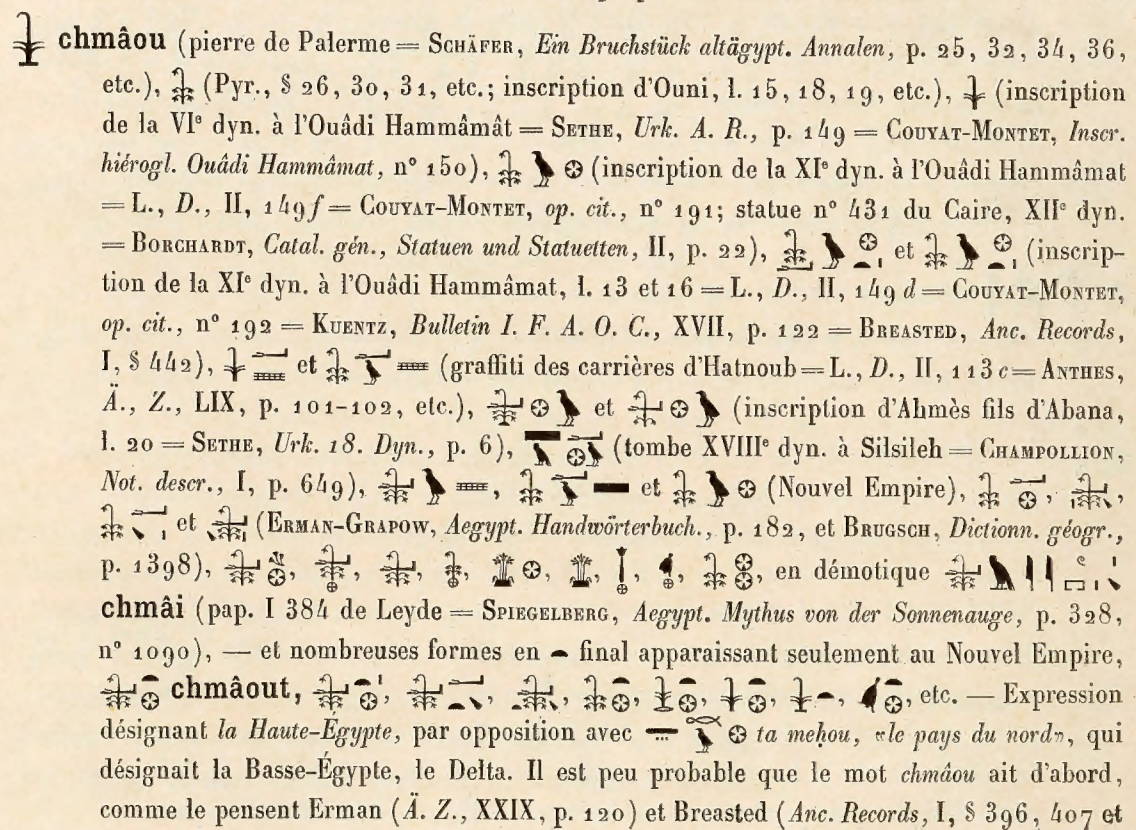 chmâou (pierre de Palerme = SCHÄFER, Ein Bruchstück altägypt. Annalen, p. 25, 32, 34, 36,
etc.), (Pyr., § 26, 30, 31, etc.; inscription d'Ouni, l. 15, 18, 19, etc.), (inscription
de la VIe dyn. à l'Ouâdi Hammâmât = SETHE, Urk. A. R., p. 149 = COUYAT-MONTET, Inscr.
hiérogl. Ouâdi Hammâmat, n° 150), (inscription de la XIe dyn. à l'Ouâdi Hammâmat
= L., D., II, 149f = COUYAT-MONTET, op. cit., n° 191; statue n° 431 du Caire, XIIe dyn.
= BORCHARDT, Catal. gén., Statuen und Statuetten, II, p. 22), et (inscrip-
tion de la XIe dyn. à l'Ouâdi Hammâmat, l. 13 et 16 = L., D., II, 149 d = COUYAT-MONTET,
op. cit., n° 192 = KUENTZ, Bulletin I. F. A. O. C., XVII, p. 122 = BREASTED, Anc. Records,
I, § 442), et (graffiti des carrières d'Hatnoub = L., D., II, 113 c = ANTHES,
Ä., Z., LIX, p. 101-102, etc.), et (inscription d'Ahmès fils d'Abana,
l. 20 = SETHE, Urk. 18. Dyn., p. 6), (tombe XVIIIe dyn. à Silsileh = CHAMPOLLION,
Not. descr., I, p. 649), , et (Nouvel Empire), , ,
et (ERMAN-GRAPOW, Aegypt. Handwörterbuch., p. 182, et BRUGSCH, Dictionn. géogr.,
p. 1398), , , , , , , , , , en démotique
chmâi (pap. I 384 de Leyde = SPIEGELBERG, Aegypt. Mythus von der Sonnenauge, p. 328,
n° 1090), — et nombreuses formes en final apparaissant seulement au Nouvel Empire,
chmâout, , , , , , , , , etc. — Expression
désignant la Haute-Égypte, par opposition avec ta meḥou, «le pays du nord», qui
désignait la Basse-Égypte, le Delta. Il est peu probable que le mot chmâou ait d'abord,
comme le pensent Erman (Ä. Z., XXIX, p. 120) et Breasted (Anc. Records, I, § 396, 407 et